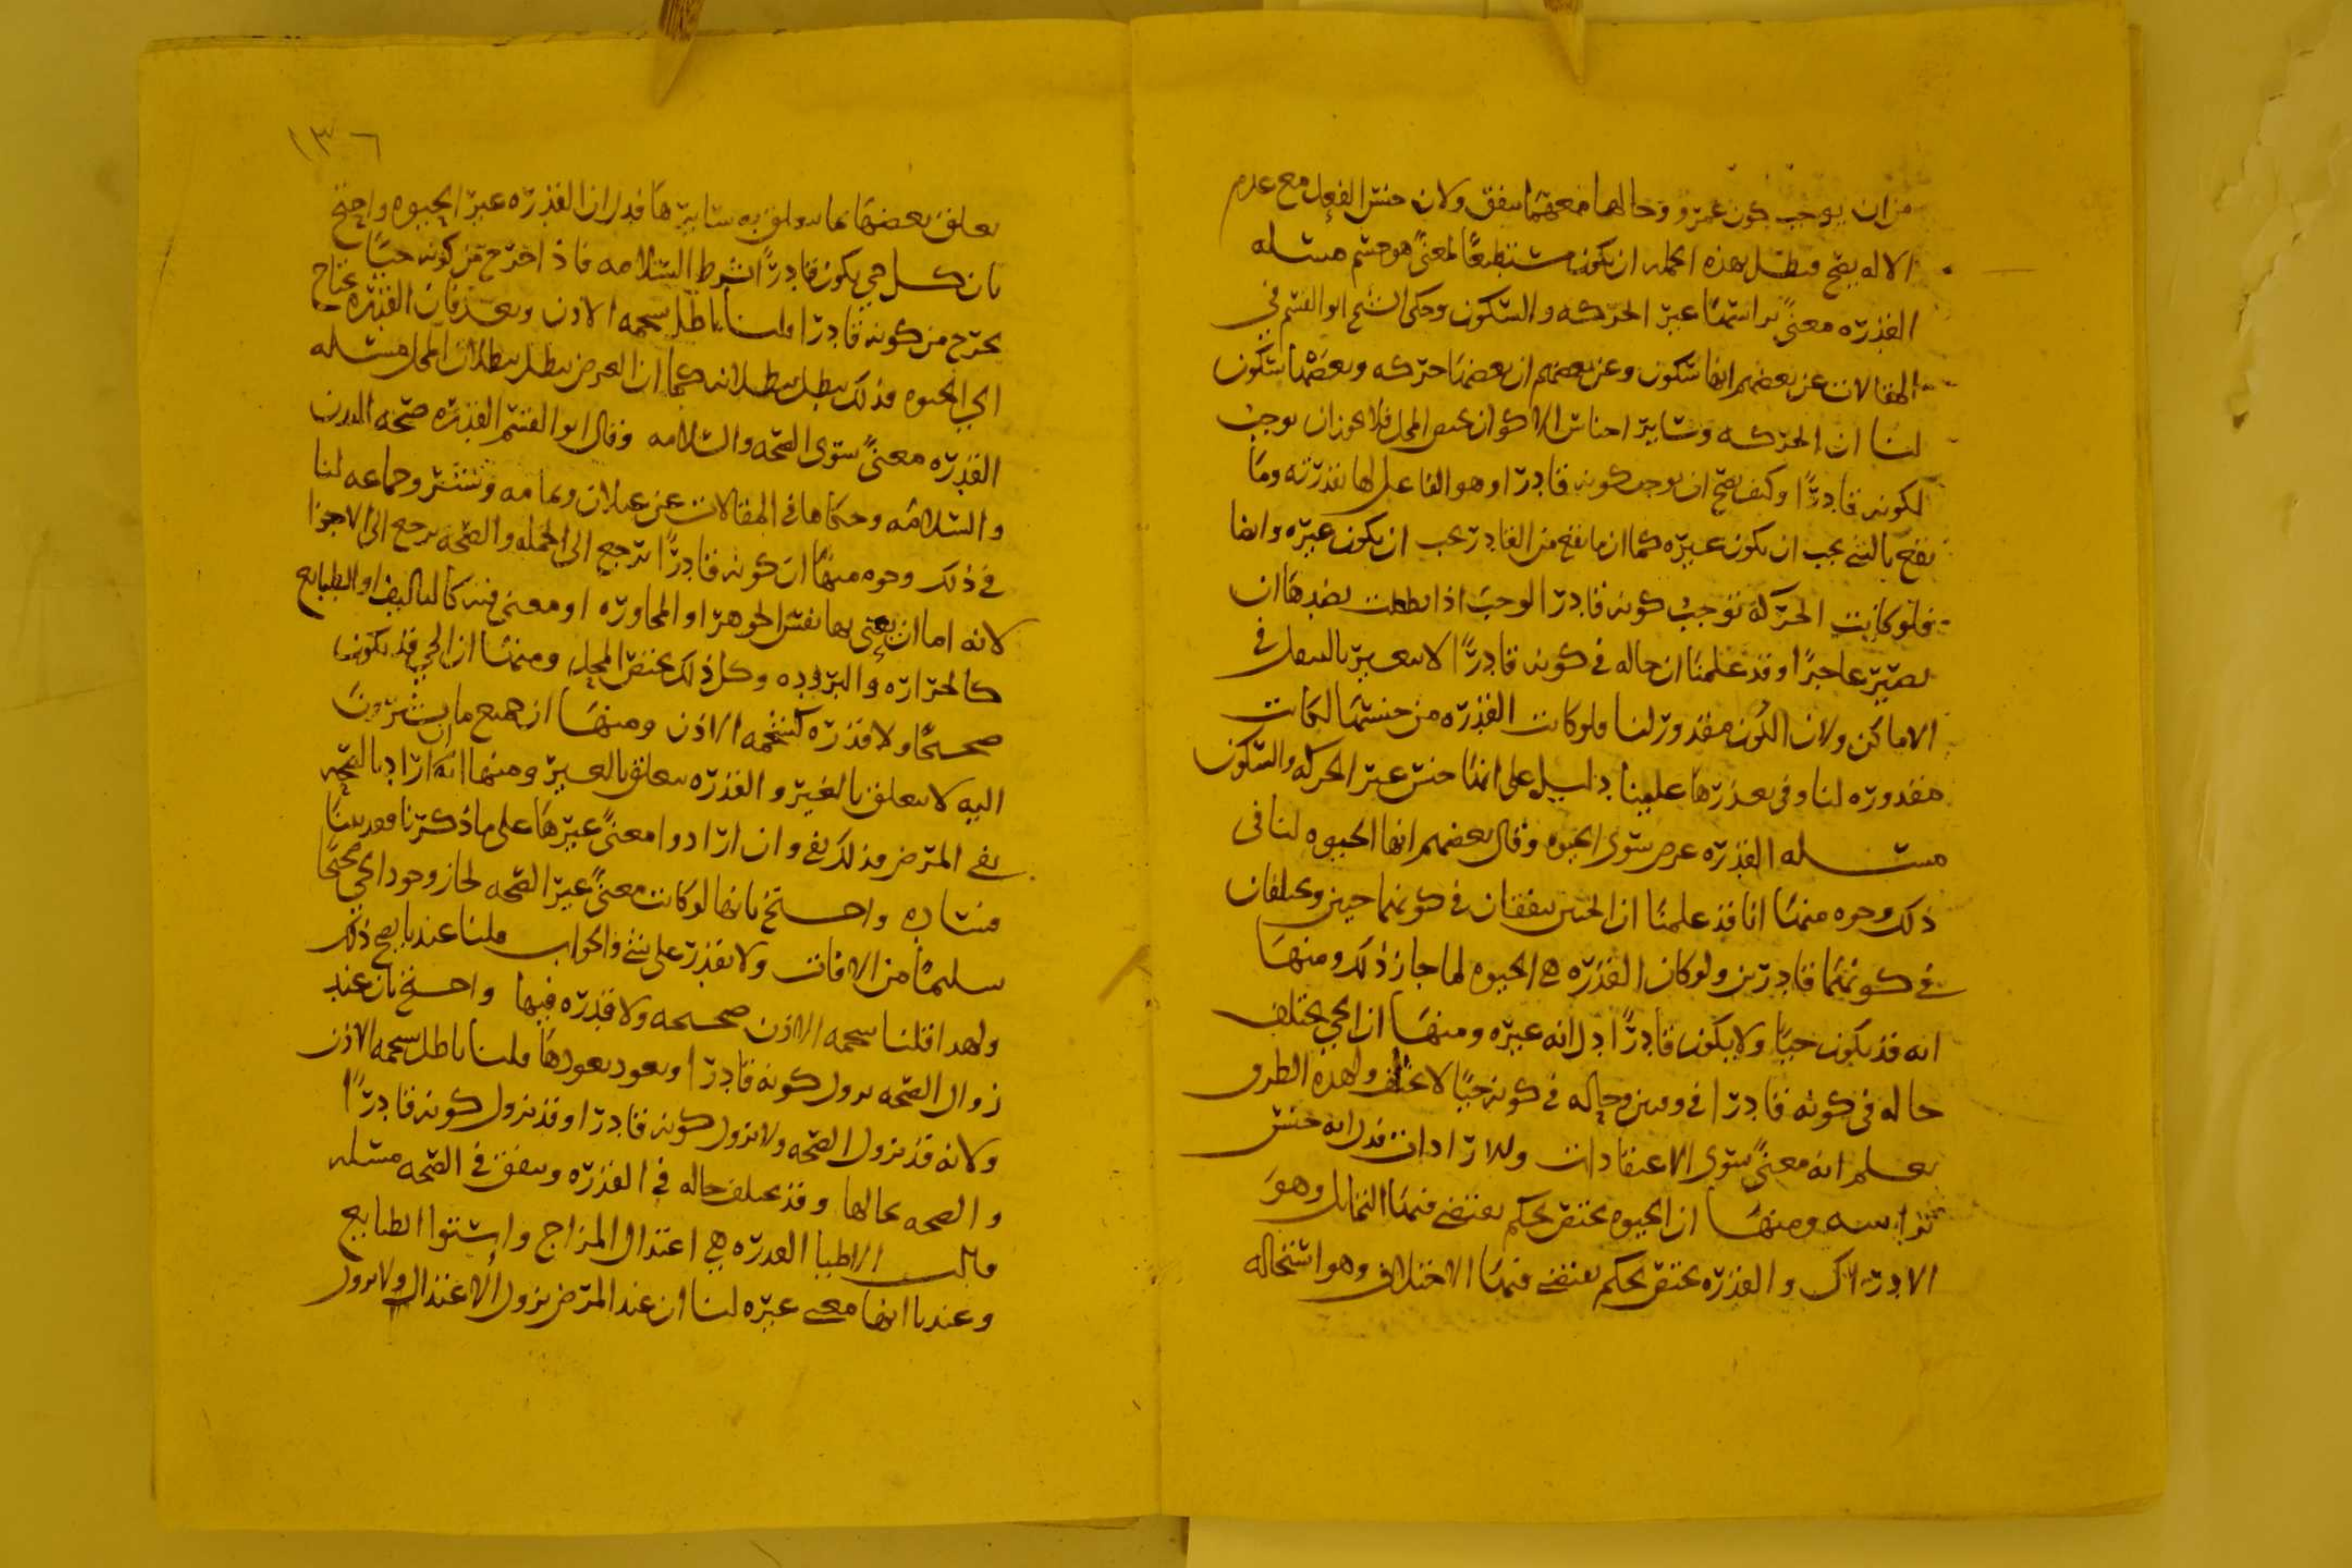 من ان يوجب كون عمرو وحالهما معهما يتفق ولان جنس الفعل مع عدم
الاله يصح فبطل بهذه الجمله ان يكون مستطيعًا لمعنىً هو جسم مسئله
القدره معنىً براسها غير الحركه والسكون وحكى الشيخ ابو القسم في
المقالات عن بعضهم انها سكون وعن بعضهم ان بعضها حركه وبعضها سكون
لنا ان الحركه وساير اجناس الاكوان يختص المحل فلا يجوز ان يوجب
لكونه قادرًا وكيف يصح ان يوجب كونه قادرًا وهو الفاعل لها بقدرته وما
يقع بالشي يجب ان يكون غيره كما ان ما يقع من القادر يجب ان يكون غيره وايضا
فلو كانت الحركة توجب كونه قادرا لوجب اذا بطلت بضدها ان
يصير عاجزًا وقد علمنا ان حاله في كونه قادرًا لا يتغير بالتنقل في
الاماكن ولان الكون مقدور لنا فلو كانت القدره من جنسها لكانت
مقدوره لنا وفي تعذرها علينا دليل على انها جنس غير الحركه والسكون
مسئله القدره عرض سوى الحيوه وقال بعضهم انها الحيوه لنا في
ذلك وجوه منها انا قد علمنا ان الحيين يتفقان في كونهما حيين ويختلفان
في كونهما قادرين ولو كان القدره هي الحيوه لما جاز ذلك ومنها
انه قد يكون حيًا ولا يكون قادرًا دل انه غيره ومنها ان الحي يختلف
حاله في كونه قادرا في وقتين وحاله في كونه حيًا لا يختلف ولهذه الطرق
يعلم انه معنىً سوى الاعتقادات والارادات فدل انه جنس
براسه ومنها ان الحيوه يختص بحكم يقتضي فيها التماثل وهو
الادراك والقدره يختص بحكم يقتضي فيها الاختلاف وهو استحاله
١٣٦
تعلق بعضها بما يتعلق به سايرها فدل ان القدره غير الحيوه واحتج
بان كل حي يكون قادرًا بشرط السلامه فاذا خرج من كونه حيًا
يخرج من كونه قادرا قلنا باطل بشحمه الاذن وبعد فان القدره يحتاج
الى الحيوه فذلك يبطل ببطلانه كما ان العرض يبطل ببطلان المحل مسئله
القدره معنىً سوى الصحه والسلامه وقال ابو القسم القدره صحه البدن
والسلامه وحكاها في المقالات عن غيلان وثمامه وبشر وجماعه لنا
في ذلك وجوه منها ان كونه قادرًا ترجع الى الجمله والصحه يرجع الى الاجزا
لانه اما ان يعنى بها نفس الجوهر او المجاوره او معنى فيه كالتاليف او الطبايع
كالحراره والبروده وكل ذلك يختص المحل ومنها ان الحي قد يكون
صحيحًا ولا قدره كشحمه الاذن ومنها ان جميع ما يشيرون
اليه لا يتعلق بالغير والقدره يتعلق بالغير ومنها انه ان اراد بالصحه
نفي المرض فذلك نفي وان ارادوا معنىً غيرها على ما ذكرنا فقد بينا
فساده واحتج بانها لو كانت معنىً غير الصحه لجاز وجود الحي صحيحًا
سليمًا من الافات ولا يقدر على شي والجواب قلنا عندنا يصح ذلك
ولهذا قلنا شحمه الاذن صحيحه ولا قدره فيها واحتج بان عند
زوال الصحه يزول كونه قادرا ويعود بعودها قلنا باطل بشحمه الاذن
ولانه قد يزول الصحه ولا يزول كونه قادرا وقد يزول كونه قادرًا
والصحه بحالها وقد يختلف حاله في القدره ويتفق في الصحه مسئله
قالت الاطبا القدره هي اعتدال المزاج واستوا الطبايع
وعندنا انها معنى غيره لنا ان عند المرض يزول الاعتدال ولا يزول